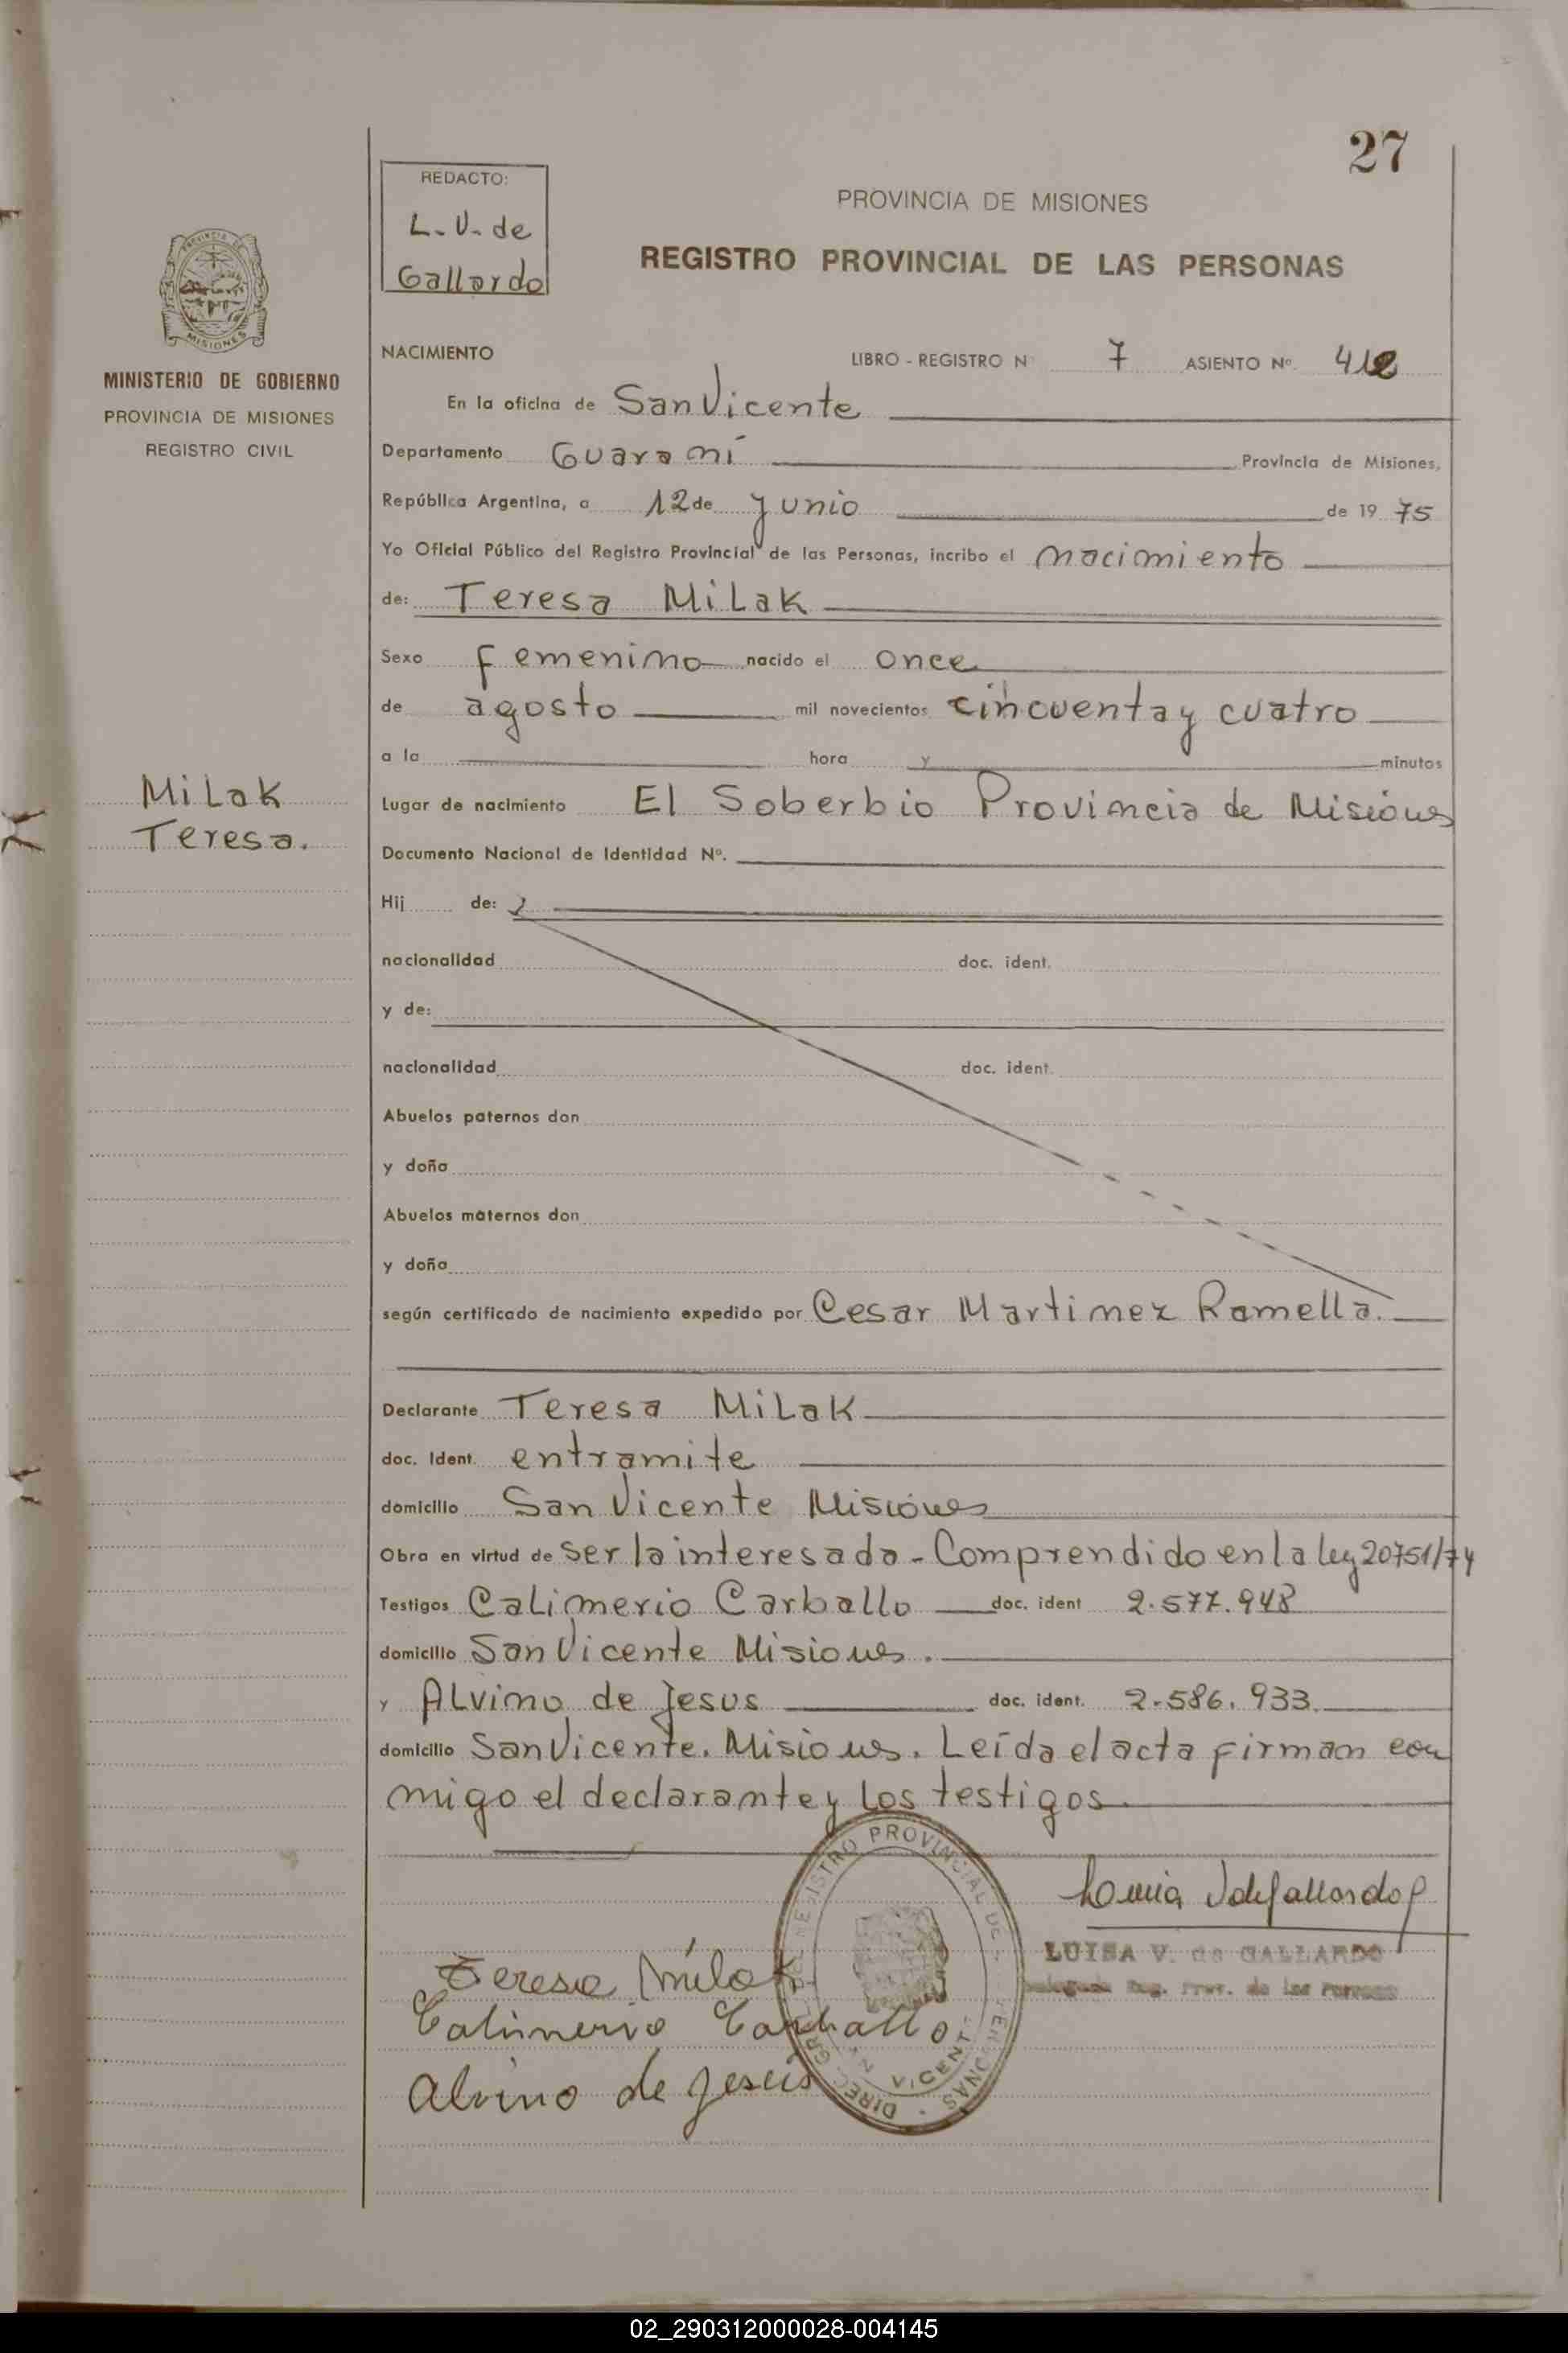 27
REDACTO:
L. V. de
Gallardo
PROVINCIA DE MISIONES
REGISTRO PROVINCIAL DE LAS PERSONAS
MISIONES
MINISTERIO DE GOBIERNO
PROVINCIA DE MISIONES
REGISTRO CIVIL
NACIMIENTO LIBRO - REGISTRO N 7 ASIENTO Nº 412
En la oficina de San Vicente
Departamento Guaraní Provincia de Misiones,
República Argentina, a 12 de junio de 1975
Yo Oficial Público del Registro Provincial de las Personas, incribo el nacimiento
de: Teresa Milak
Sexo femenino nacido el once
de agosto mil novecientos cincuenta y cuatro
a la hora y minutos
Milak
Teresa.
Lugar de nacimiento El Soberbio Provincia de Misiones
Documento Nacional de Identidad Nº.
Hij de:
nacionalidad doc. ident.
y de:
nacionalidad doc. ident.
Abuelos paternos don
y doña
Abuelos maternos don
y doña
según certificado de nacimiento expedido por Cesar Martinez Ramella.
Declarante Teresa Milak
doc. Ident. entramite
domicilio San Vicente Misiones
Obra en virtud de ser la interesada - Comprendido en la ley 20751/74
Testigos Calimerio Carballo doc. ident 2.577.948
domicilio San Vicente Misiones.
y Alvino de Jesus doc. ident. 2.586.933.
domicilio San Vicente. Misiones. Leída el acta firman con
migo el declarante y los testigos.
LUISA V. de GALLARDO
Reg. Prov. de las Personas
Teresa Milak
Calimerio Carballo
Alvino de Jesús
02_290312000028-004145